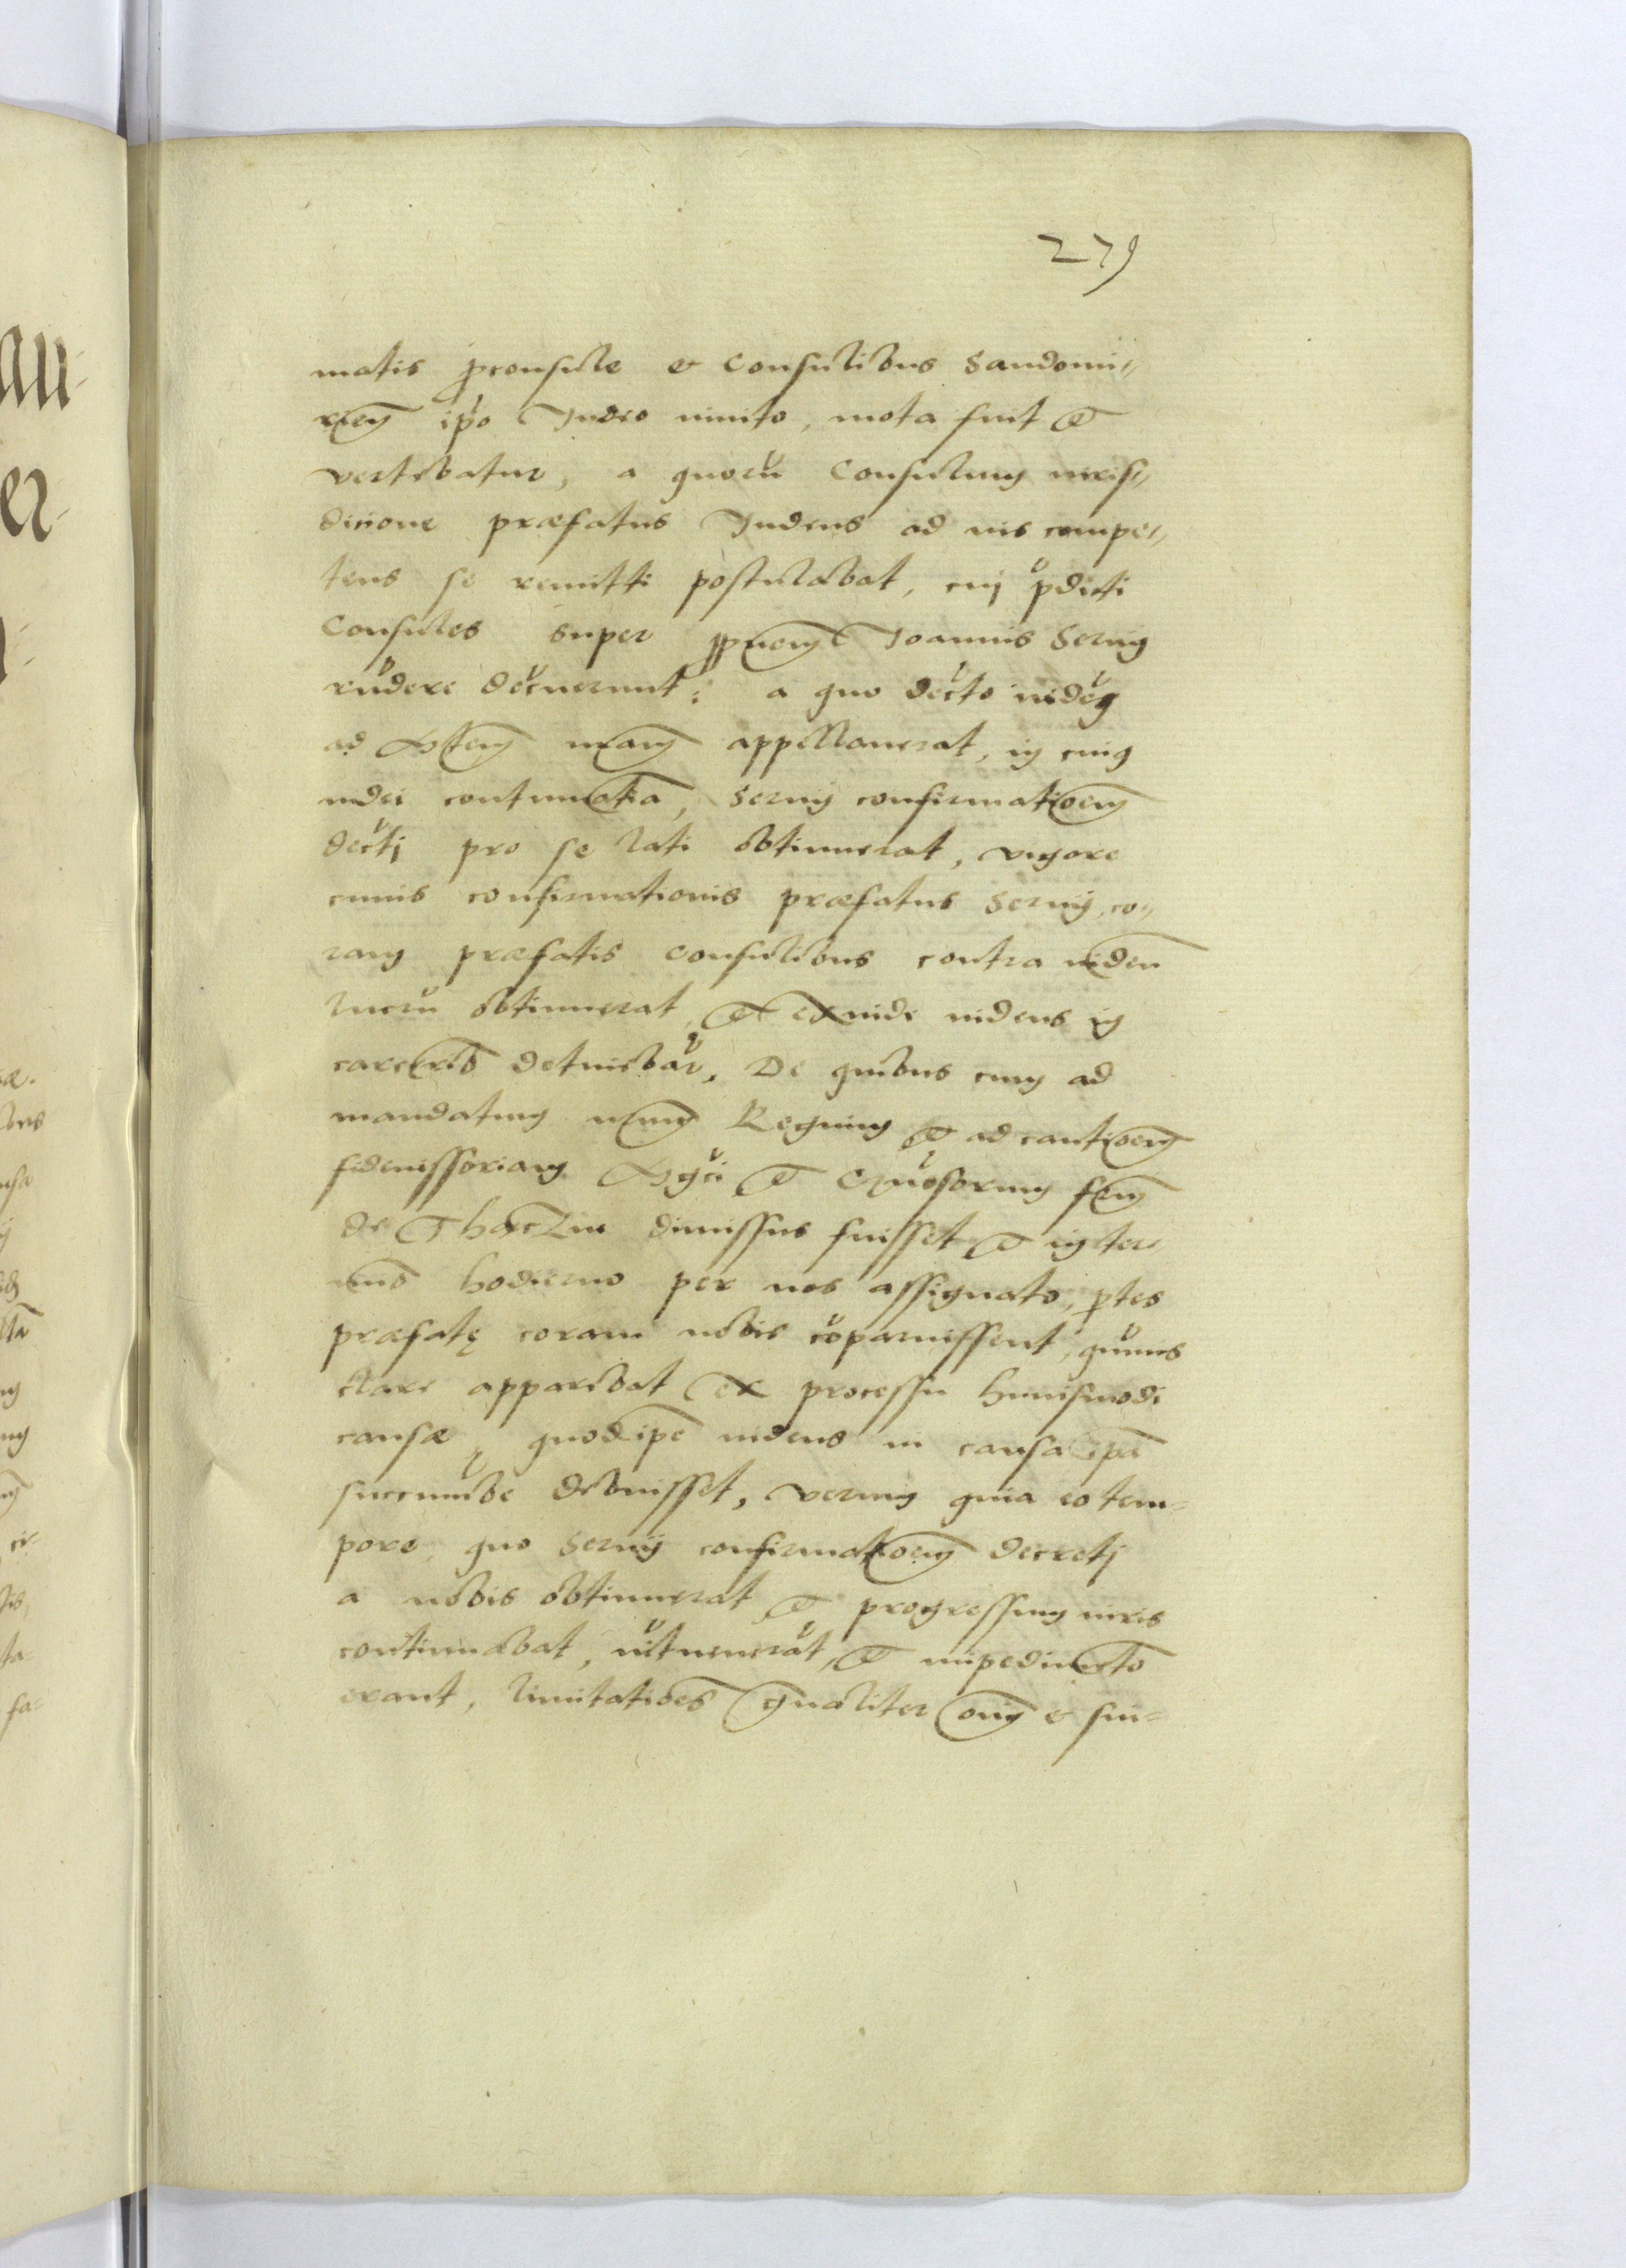 279
matis proconsule & Consulibus Sandomi-
rien ipso Iudeo inuito, mota fuit et
vertebatur, a quorũ Consulum iuris-
dicione præfatus Iudeus ad ius compe-
tens se remitti postulabat, cuj p̃dicti
Consules super Joannis Sernij
rñdere decreuerunt: a quo decto iudeg
ad Mtem nram appellauerat, in cuius
iudei contumatia, Sernij confirmatioem
decti pro se lati obtinuerat, vigore
cuius confirmationis præfatus Sernij, co-
ram præfatis Consulibus contra iudeũ
lucrũ obtinuerat, et exinde iudeus in
carcerib detinebat̃. De quibus cum ad
mandatum nrum Regium et ad cautioem
fideiussoriam et
de dimissus fuisset et in ter-
mino hodierno per nos assignato, ptes
præfatę coram nobis cõparuissent, quuis
clare apparebat ex processu huiusmodi
causæ, quod ipe iudeus in causa ipa
succumbe debuisset, verum quia eo tem-
pore, quo Sernij confirmatioem decretj
a nobis obtinuerat et progressum iuris
continuabat, interuenerãt, et impedimeto
erant, limitatiões gnaliter oim & sin-